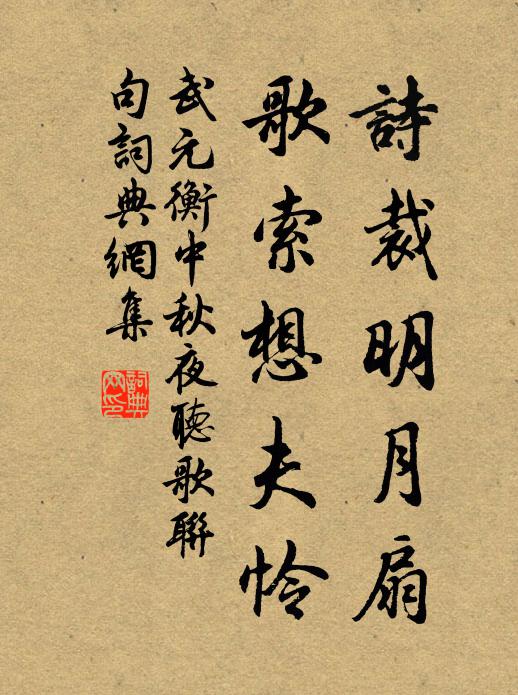 詩裁明月扇
歌索想夫怜
武元衡中秋夜聽歌聯
句詞典網集
詞典
网印